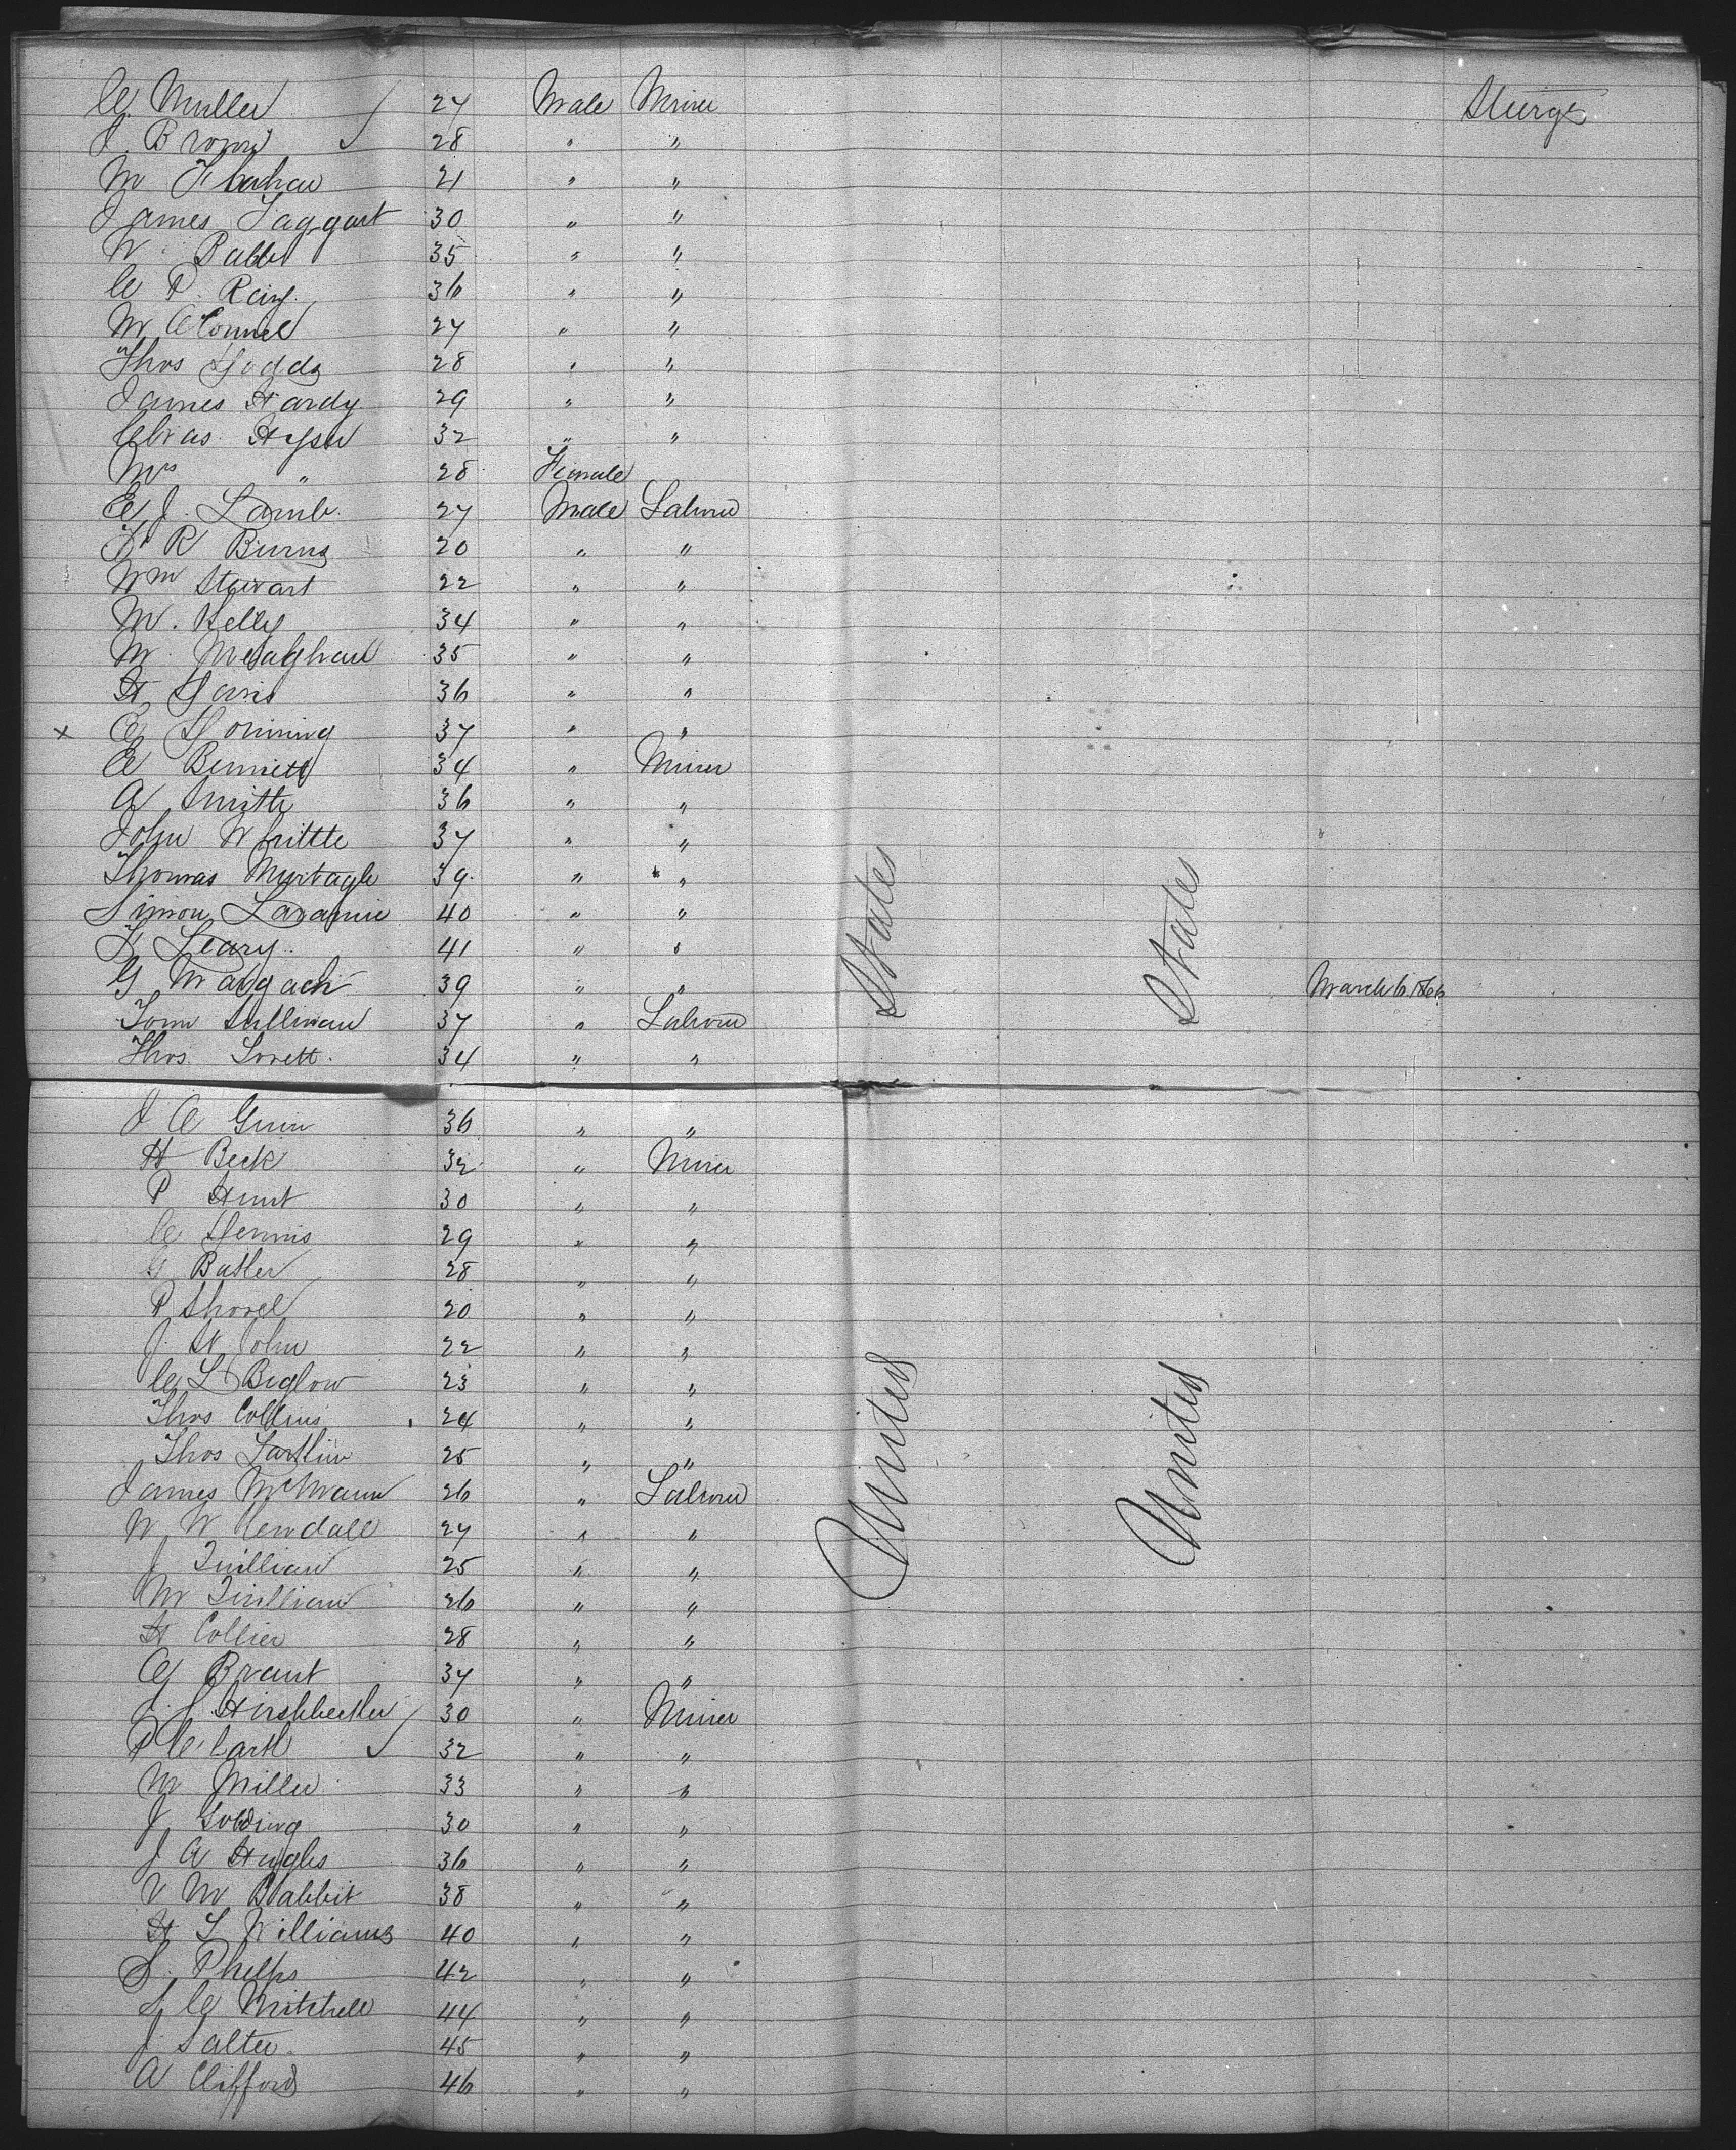 C. Muller 27 Male Miner Sturgs
J. Brown 28 " "
M 21 " "
James Taggart 30 " "
W. Babb 35 " "
C P. Ray. 36 " "
M O'Connel 27 " "
Thos Dodds 28 " "
James Hardy 29 " "
Chas. Hyser 32 " "
Mrs " 28 Female
E J. Lamb. 27 Male Laborer
F R Burns 20 " "
Wm Stewart 22 " "
M. Kelly 34 " "
M. 35 " "
H Davis 36 " "
x E Horning 37 " "
E Bennett 34 " Miner
A Smith 36 " "
John Whittle 37 " "
Thomas Murtagh 39 " "
Simon Laramie 40 " "
F Leary. 41 " "
G Margach 39 " " March 6, 1866
Tom Sullivan 37 " Laborer
Thos. Lovett. 34 " "
J C Guin 36 " "
H Beck 32 " Miner
P Hunt 30 " "
C Dennis 29 " "
G Butler 28 " "
P Shovel 20 " "
J. St John 22 " "
C L Biglow 23 " "
Thos Collins 24 " "
Thos Lartlin 25 " "
James McMann 26 " Laborer
W W Kendall 27 " "
J Quillian 25 " "
M Quillian 26 " "
H Collier 28 " "
G Brant 37 " "
J. S. Hirshbecker 30 " Miner
P C. Carll 32 " "
M Miller 33 " "
J Golding 30 " "
J A Hughs 36 " "
V M Babbit 38 " "
H L Williams 40 " "
S. Phelps 42 " "
S C Mitchell 44 " "
J. Salter. 45 " "
A Clifford 46 " "
United States
United States